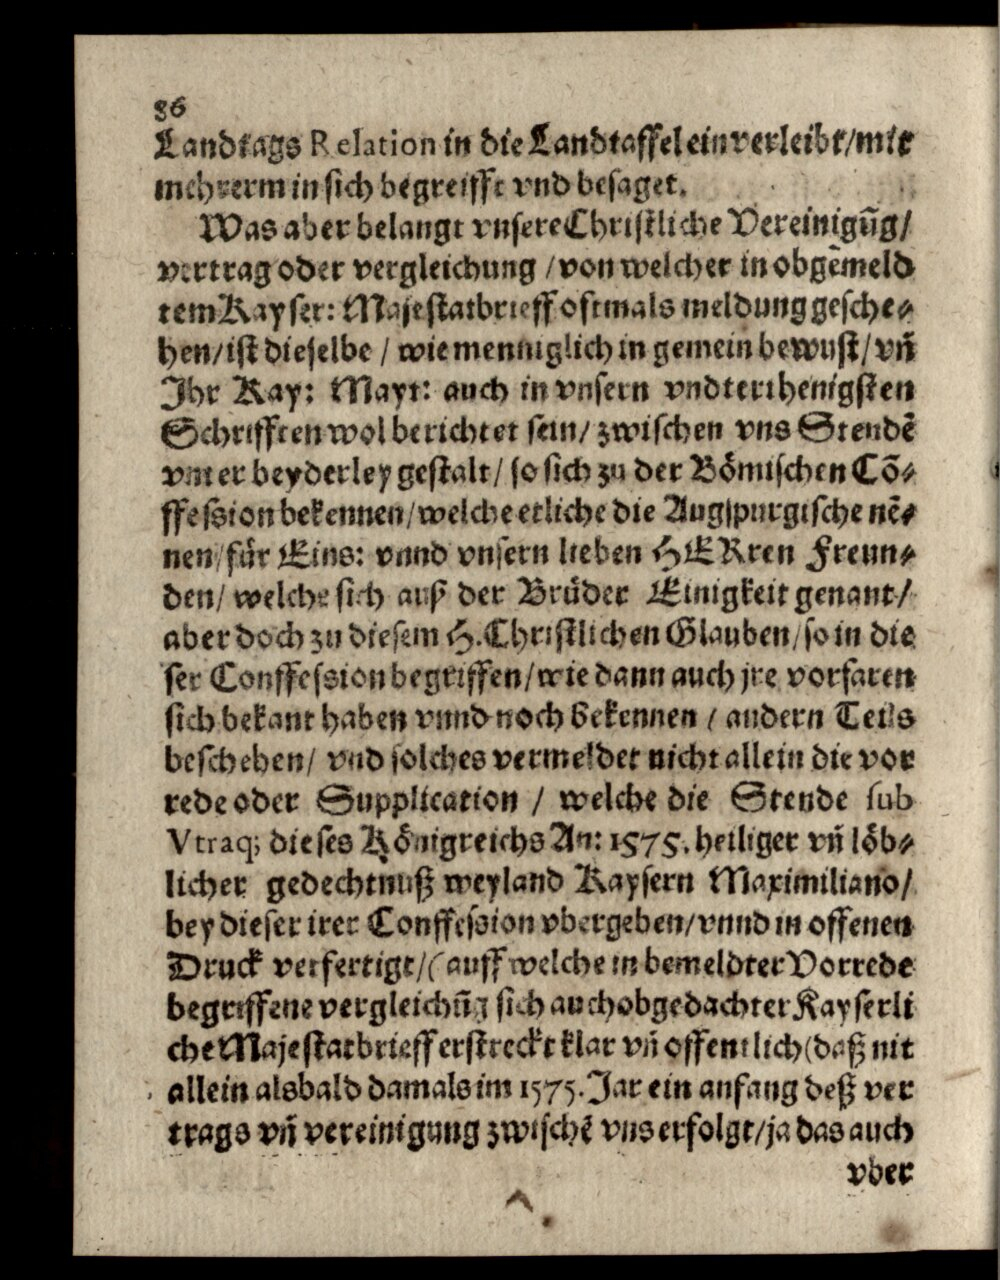 86
Landtags Relation in die Landtaffel einverleibt/mit
mehrerm in sich begreifft vnd besaget.
Was aber belangt vnsere Christliche Vereinigūg/
vertrag oder vergleichung /von welcher in obgēmeld
tem Kayser: Majestatbrieff oftmals meldung gesche⸗
hen/ist dieselbe / wie menniglich in gemein bewust/vñ
Ihr Kay: Mayt: auch in vnsern vndterthenigsten
Schrifften wol berichtet sein/ zwischen vns Stendē
vnter beyderley gestalt/ so sich zu der Bömischen Cō⸗
ffession bekennen/welche etliche die Augspurgische nē⸗
nen/für Eins: vnnd vnsern lieben HERren Freun⸗
den/ welche sich auß der Brüder Einigkeit genant/
aber doch zu diesem H.Christlichen Glauben/so in die
ser Conffession begriffen/wie dann auch jre vorfaren
sich bekant haben vnnd noch bekennen / andern Teils
beschehen/ vnd solches vermeldet nicht allein die vor
rede oder Supplication / welche die Stende sub
Vtraq; dieses Königreichs An: 1575. heiliger vñ löb⸗
licher gedechtnuß weyland Kaysern Maximiliano/
bey dieser irer Conffession vbergeben/vnnd in offenen
Druck verfertigt/(auff welche in bemeldter Vorrede
begriffene vergleichūg sich auch obgedachter Kayserli
che Majestatbrieff erstreckt klar vñ offentlich(daß nit
allein alsbald damals im 1575. Jar ein anfang deß ver
trags vñ vereinigung zwischē vns erfolgt/ja das auch
vber